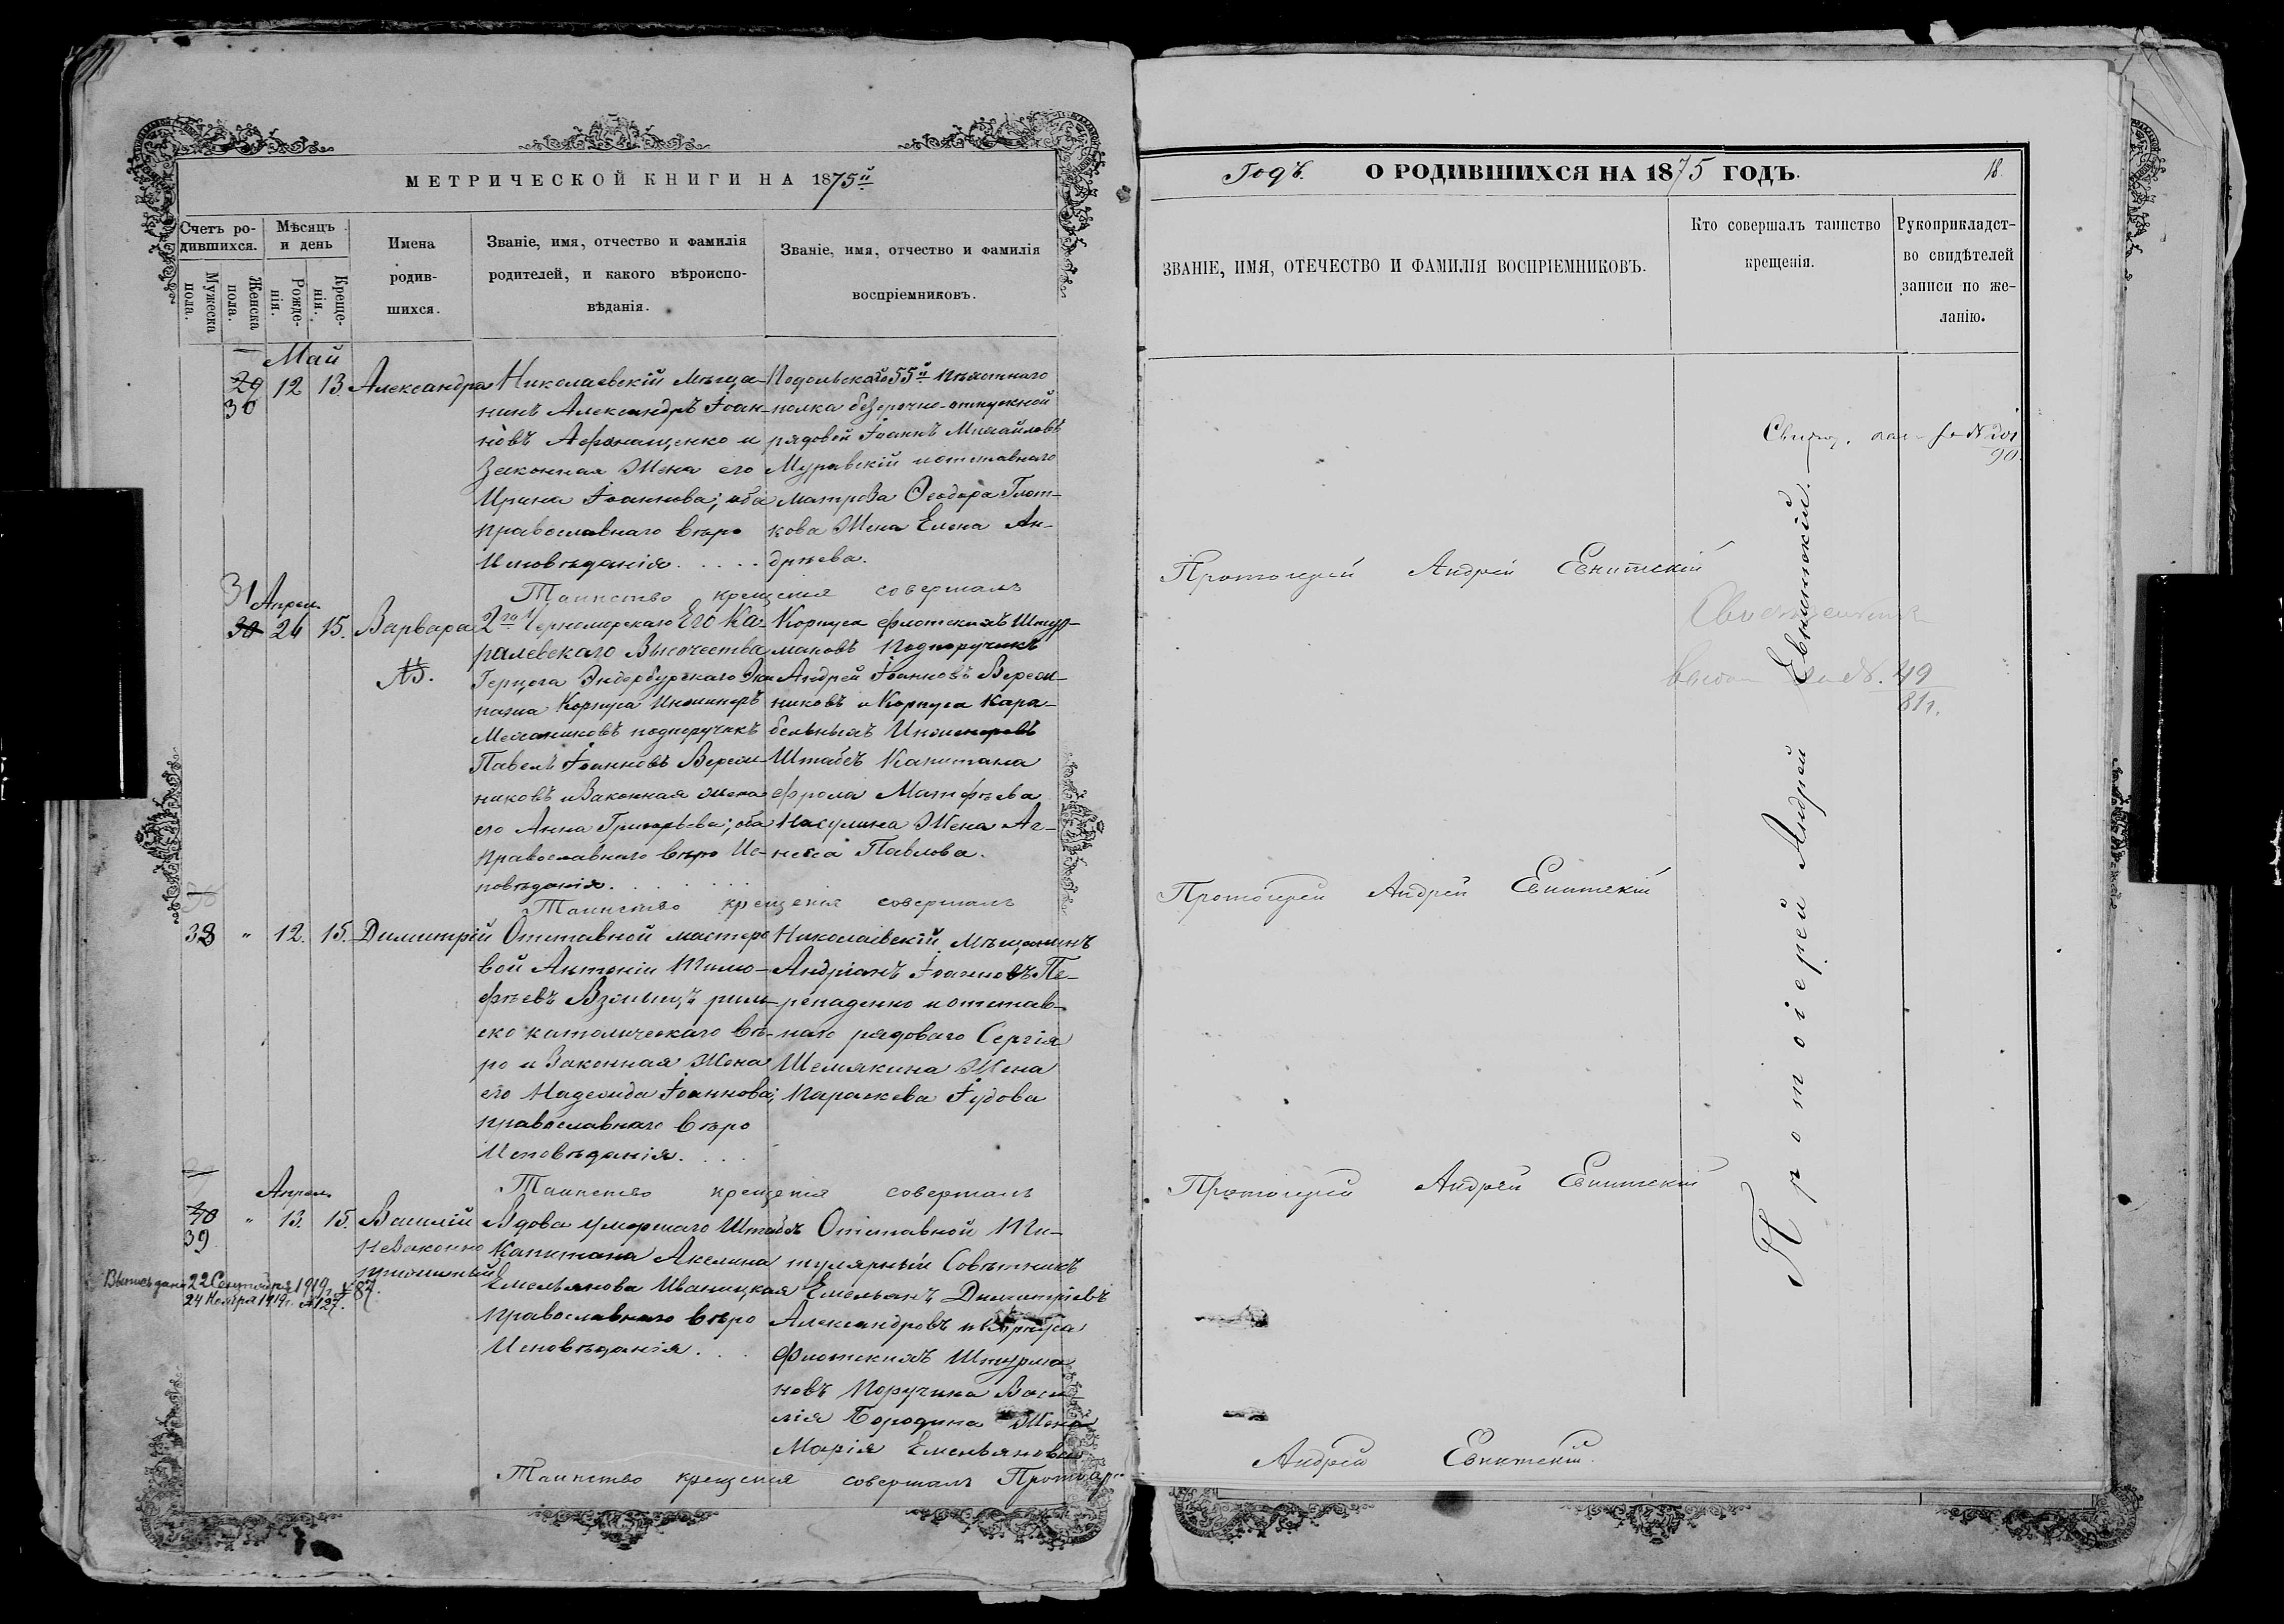 МЕТРИЧЕСКОЙ КНИГИ НА 1875й
Счетъ ро-
дившихся.
Мѣсяцъ
и день
Мужеска пола.
Женска пола.
Рожде-
нія.
Креще-
нія.
Имена
родив-
шихся.
Званіе, имя, отчество и фамилія
родителей, и какого вѣроиспо-
вѣданія.
Званіе, имя, отчество и фамилія
воспріемниковъ.
Май
29
30
12 13. Александра
Николаевскій мѣща-
нинъ Александръ Іоан-
новъ Афонащенко и
Законная Жена его
Ирина Іоаннова; оба
православнаго вѣро
Исповѣданія.
Подольскаго 55й пѣхотнаго
полка безсрочно-отпускной
рядовой Іоаннъ Михайловъ
Муравскій и отставнаго
матроза Ѳеодора Глот-
кова Жена Елена Ан-
дрѣева.
Таинство крещенія совершалъ
31
30
Апрѣл.
24 15. Варвара
№.
2го Черноморскаго Его Ка-
ролевскаго Высочества
Герцога Эндербургскаго Эки
пажа Корпуса Инженеръ
Механиковъ подпоручикъ
Павелъ Іоанновъ Верем-
никовъ и Законная жена
его Анна Григорьева; оба
православнаго вѣро Ис-
повѣданія.
Корпуса флотскихъ Штур-
мановъ Подпоручикъ
Андрей Іоанновъ Верем-
никовъ и Корпуса Кора-
бельныхъ Инженеровъ
Штабсъ Капитана
Фрола Матфѣева
Жена Аг-
Павлова.
Таинство крещенія совершалъ
38 " 12. 15. Димитрій
Отставной мастеро
вой Антоній Тимо-
фѣевъ рим-
ско католическаго вѣ-
ро и Законная Жена
его Надежда Іоаннова;
православнаго вѣро
Исповѣданія.
Николаевскій Мѣщанинъ
Андріанъ Іоанновъ Пе-
репаденко и отстав-
наго рядоваго Сергія
Шемякина Жена
Параскева Іудова
Таинство крещенія совершалъ
Апрѣл.
40
39
" 13. 15. Василій
Незаконно
прижитый
Вдова умершаго Штабсъ
Капитана Акелина
Емельянова Иваницкая
православнаго вѣро
Исповѣданія.
Отставной Ти-
тулярный Совѣтникъ
Емельянъ Димитріевъ
Александровъ и Корпуса
Флотскихъ Штурма
новъ Поручика Васи
лія Бородина Жена
Марія Емельянова
Выпись дана 22 Сентября 1919 г. № 87.
24 Ноября 1919 г. № 127.
Таинство крещенія совершалъ Протоіерей
Годъ.
О РОДИВШИХСЯ НА 1875 ГОДЪ.
18.
ЗВАНІЕ, ИМЯ, ОТЕЧЕСТВО И ФАМИЛІЯ ВОСПРІЕМНИКОВЪ.
Кто совершалъ таинство
крещенія.
Рукоприкладст-
во свидѣтелей
записи по же-
ланію.
90.
Протоіерей Андрей Евнитскій
49
81 г.
Протоіерей Андрей Евнитскій
Протоіерей Андрей Евнитскій
Протоіерей Андрей Евнитскій.
Андрей Евнитскій.